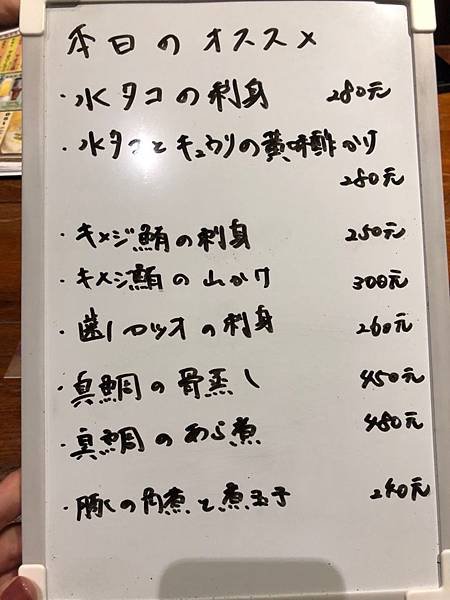 本日のオススメ
・水タコの刺身 280元
・水タコとキュウリの黄味酢かけ
280元
・キメジ鮪の刺身 250元
・キメジ鮪の山かけ 300元
・歯ガツオの刺身 260元
・真鯛の骨蒸し 450元
・真鯛のあら煮 480元
・豚の角煮と煮玉子 240元